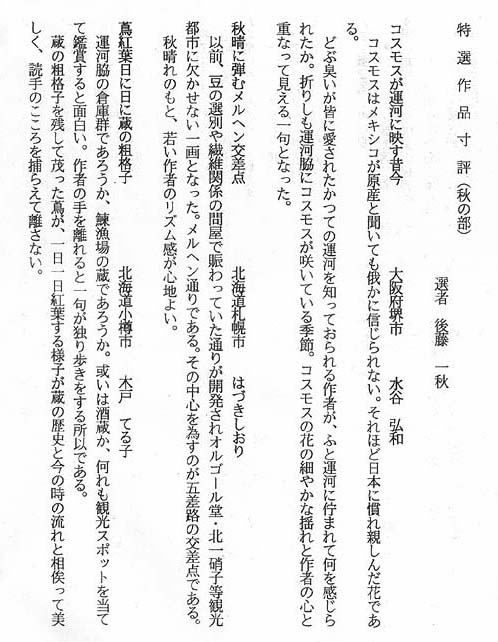 特選作品寸評(秋の部)
選者　後藤　一秋
コスモスが運河に映す昔今　大阪府堺市　水谷　弘和
コスモスはメキシコが原産と聞いても俄かに信じられない。それほど日本に慣れ親しんだ花であ
る。
どぶ臭いが皆に愛されたかつての運河を知っておられる作者が、ふと運河に佇まれて何を感じら
れたか。折りしも運河脇にコスモスが咲いている季節。コスモスの花の細やかな揺れと作者の心と
重なって見える一句となった。
秋晴に弾むメルヘン交差点　北海道札幌市　はづきしおり
以前、豆の選別や繊維関係の問屋で賑わっていた通りが開発されオルゴール堂・北一硝子等観光
都市に欠かせない一画となった。メルヘン通りである。その中心を為すのが五差路の交差点である。
秋晴れのもと、若い作者のリズム感が心地よい。
蔦紅葉日に日に蔵の粗格子　北海道小樽市　木戸　てる子
運河脇の倉庫群であろうか、鰊漁場の蔵であろうか。或いは酒蔵か、何れも観光スポットを当て
て鑑賞すると面白い。作者の手を離れると一句が独り歩きをする所以である。
蔵の粗格子を残して茂った蔦が、一日一日紅葉する様子が蔵の歴史と今の時の流れと相俟って美
しく、読手のこころを捕らえて離さない。